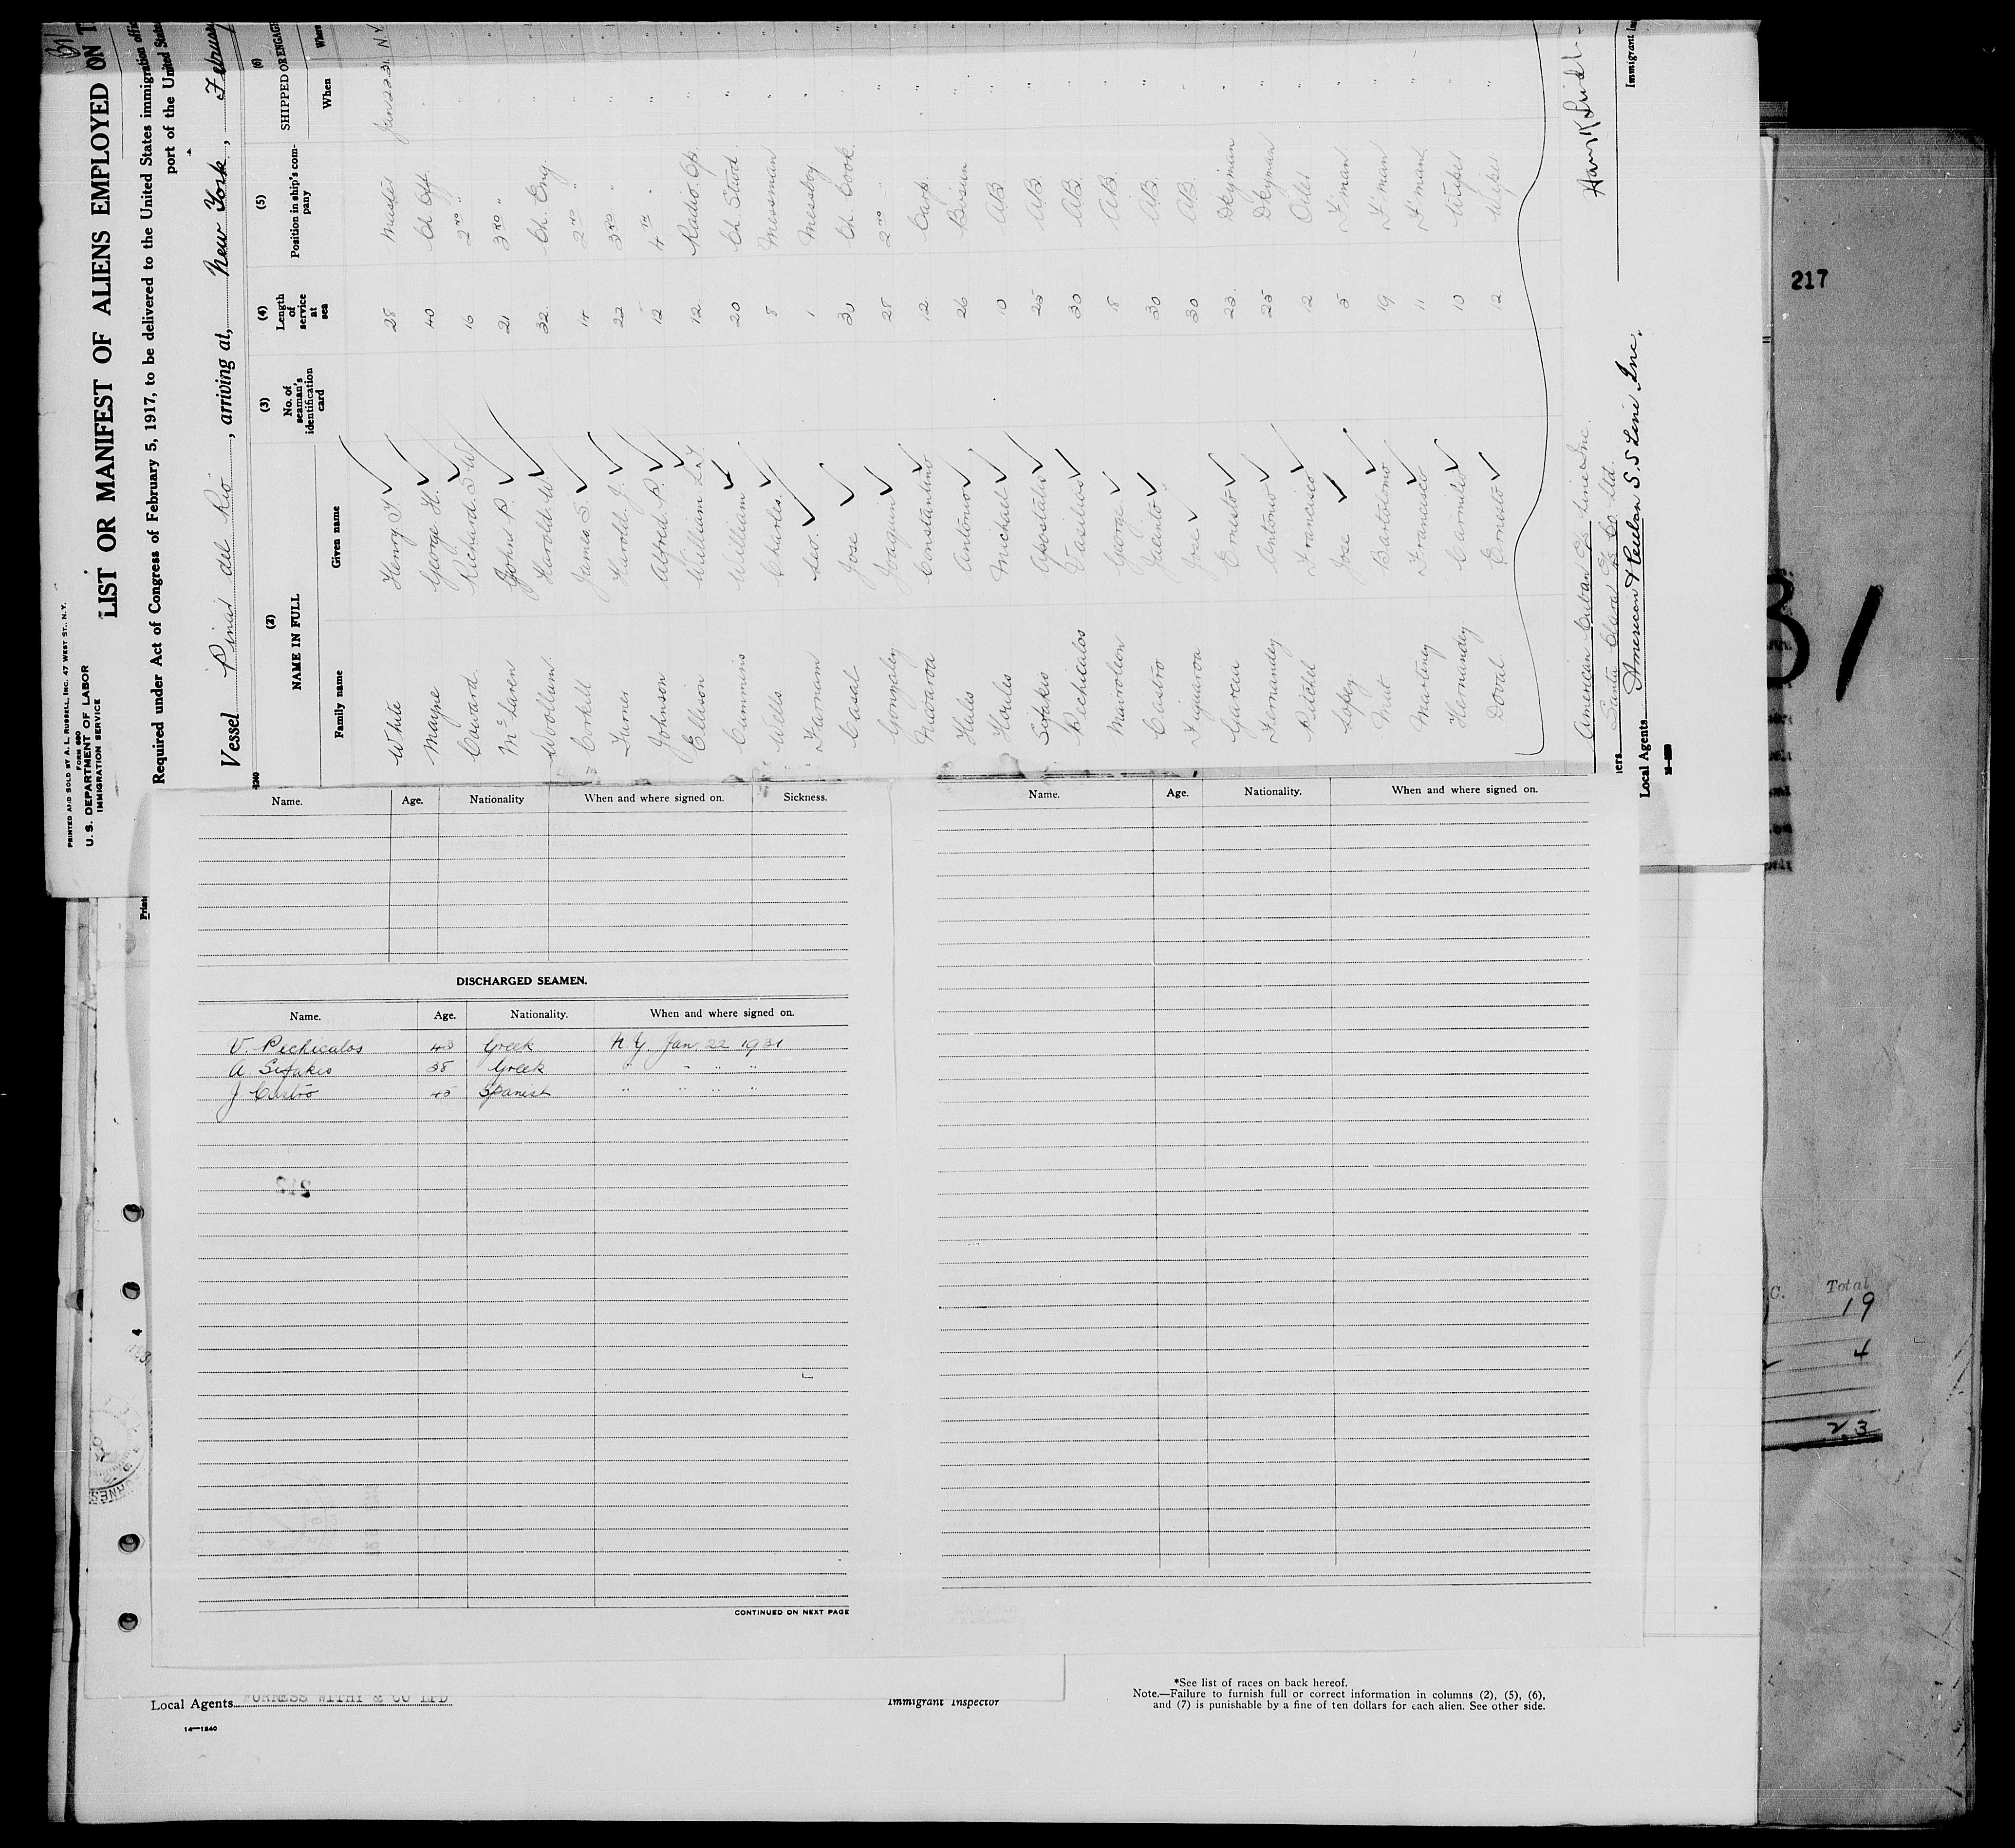 PRINTED AND SOLD BY A. L. RUSSELL, INC. 47 WEST ST., N.Y.
FORM 680
U. S. DEPARTMENT OF LABOR
IMMIGRATION SERVICE
LIST OR MANIFEST OF ALIENS EMPLOYED ON T
Required under Act of Congress of February 5, 1917, to be delivered to the United States immigration offi
port of the United State
Vessel Pinar del Rio, arriving at, New York, February
(2) (3) (4) (5) (6)
NAME IN FULL No. of seaman's identification card Length of service at sea Position in ship's company SHIPPED OR ENGAG
Family name Given name When Where
White Henry 28 Master Jan 22 31 N.Y.
Mayne George H. 40 Ch. Off. "
Caward Richard S W 16 2nd " "
McLaren John P. 21 3rd " "
Woollum Harold W 32 Ch. Eng. "
Corkill James S 14 2nd " "
Turner Harold J. 22 3rd " "
Johnson Alfred P. 12 4th " "
Ellison William 12 Radio Op. "
Cummins William 20 Ch Stwd "
Wells Charles 8 Messman "
Farnem Geo. 1 Messboy "
Casal Jose 30 Ch. Cook "
Gonzalez Joaquin 28 2nd " "
Constantino 12 Carp. "
Hulis Antonio 26 Bosun "
Houles Michael 10 AB. "
Sifakis Apostalis 25 AB. "
Pechilalos Vasilios 30 AB. "
Mavroleon George 18 AB. "
Castro Jacinto 30 AB. "
Figuaroa Jose 30 AB. "
Garcia Ernesto 23 Dkyman "
Fernandez Antonio 25 Dkyman "
Pitchel Francisco 12 Oiler "
Lopez Jose 5 F'man "
Mut Bartolomo 19 F'man "
Martinez Francisco 11 F'man "
Hernandez Carmilo 10 Wiper "
Doval Ernesto 12 Wiper "
American Cuban S/S Line Inc.
Santa Clara S/S Co. Ltd.
Local Agents American & Cuban S.S Line Inc.
Immigrant In
217
Name. Age. Nationality When and where signed on. Sickness.
DISCHARGED SEAMEN.
Name. Age. Nationality. When and where signed on.
V. Pechicalos 43 Greek N.Y. Jan. 22 1931
A Sifakis 38 Greek " " " "
J Castro 45 Spanish " " " "
CONTINUED ON NEXT PAGE
Name. Age. Nationality. When and where signed on.
C. Total
19
4
23
Local Agents FURNESS WITHY & CO LTD
14—1240
Immigrant Inspector
*See list of races on back hereof.
Note.—Failure to furnish full or correct information in columns (2), (5), (6),
and (7) is punishable by a fine of ten dollars for each alien. See other side.